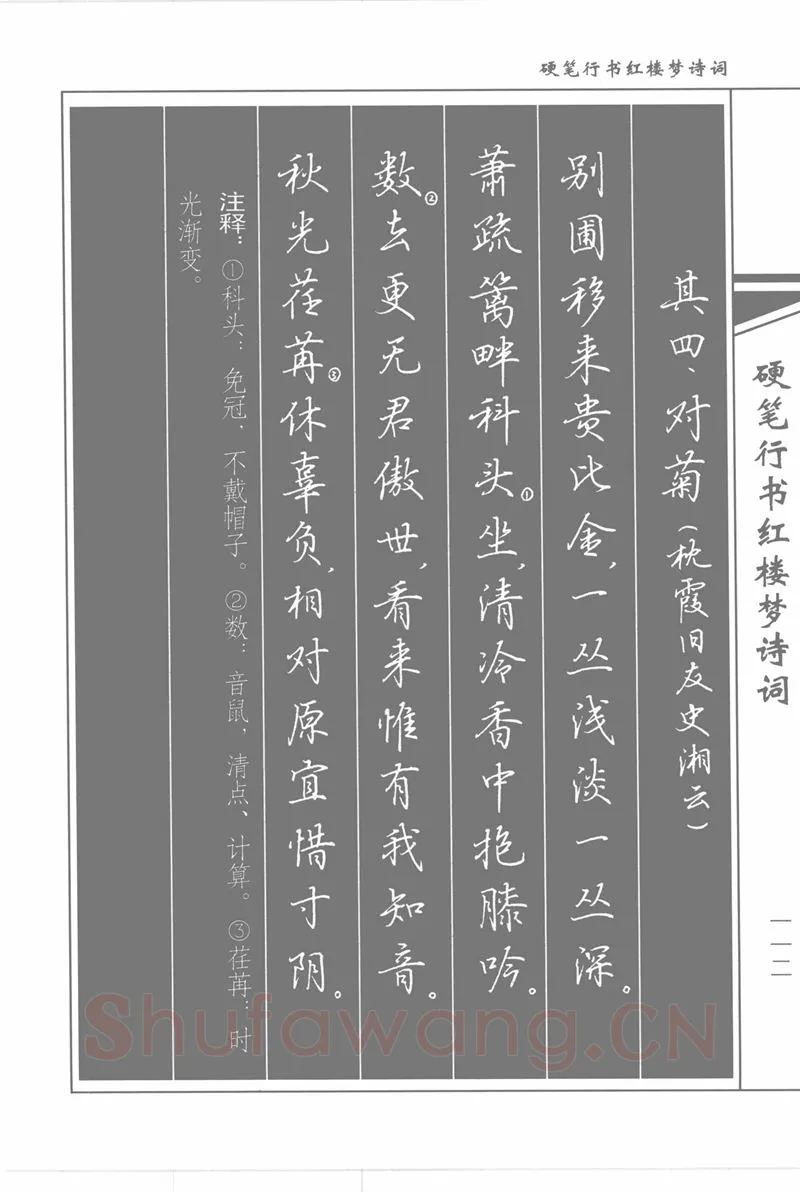 硬笔行书红楼梦诗词
硬笔行书红楼梦诗词
一一二
其四、对菊（枕霞旧友史湘云）
别圃移来贵比金，一丛浅淡一丛深。
萧疏篱畔科头①坐，清冷香中抱膝吟。
数②去更无君傲世，看来惟有我知音。
秋光荏苒③休辜负，相对原宜惜寸阴。
注释：①科头：免冠，不戴帽子。②数：音鼠，清点、计算。③荏苒：时
光渐变。
Shufawang.CN